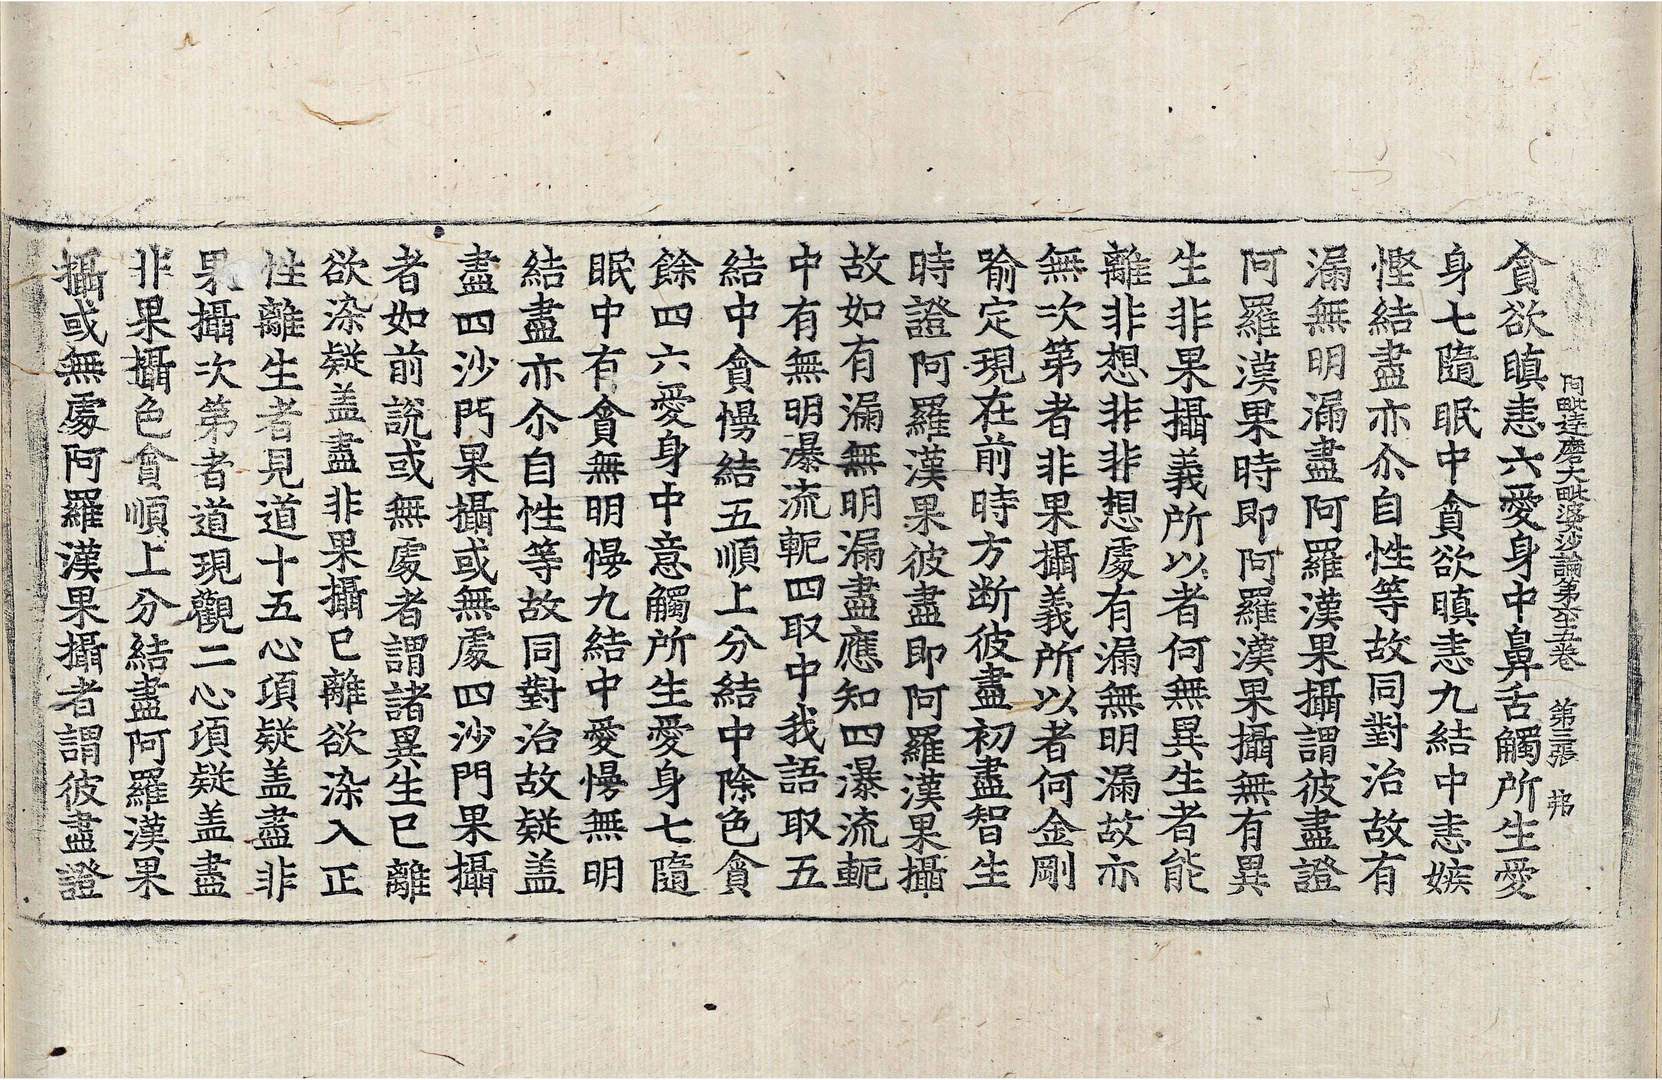 阿毗達磨大毗婆沙論第六十五卷　第三張　弗
貪欲瞋恚六愛身中鼻舌觸所生愛
身七隨眠中貪欲瞋恚九結中恚嫉
慳結盡亦尒自性等故同對治故有
漏無明漏盡阿羅漢果攝謂彼盡證
阿羅漢果時即阿羅漢果攝無有異
生非果攝義所以者何無異生者能
離非想非非想處有漏無明漏故亦
無次第者非果攝義所以者何金剛
喻定現在前時方断彼盡初盡智生
時證阿羅漢果彼盡即阿羅漢果攝
故如有漏無明漏盡應知四瀑流軛
中有無明瀑流軛四取中我語取五
結中貪慢結五順上分結中除色貪
餘四六愛身中意觸所生愛身七隨
眠中有貪無明慢九結中愛慢無明
結盡亦尒自性等故同對治故疑盖
盡四沙門果攝或無處四沙門果攝
者如前說或無處者謂諸異生已離
欲染疑盖盡非果攝已離欲染入正
性離生者見道十五心項疑盖盡非
果攝次第者道現觀二心項疑盖盡
非果攝色貪順上分結盡阿羅漢果
攝或無處阿羅漢果攝者謂彼盡證